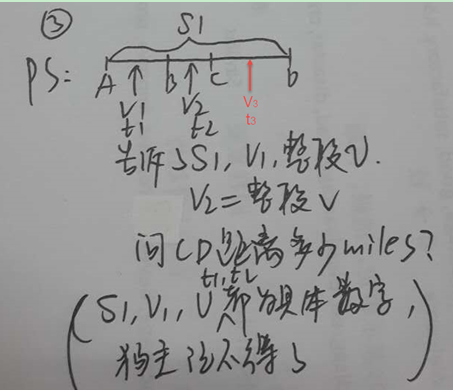 ③ S1
PS: A B C D
V1 V2 V3
t1 t2 t3
告诉了S1, V1, 整段V.
V2 = 整段V
问CD距离多少miles?
t1, t2
(S1, V1, V都为具体数字,
狗主记不得了)